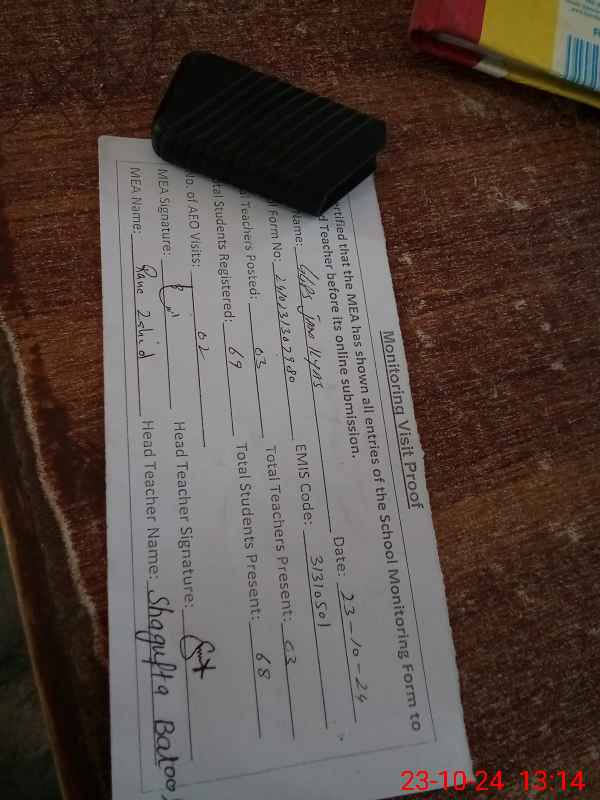 Monitoring Visit Proof
ertified that the MEA has shown all entries of the School Monitoring Form to
d Teacher before its online submission.
Date: 23-10-24
Name: GGPS
EMIS Code: 31310501
l Form No:
l Teachers Posted: 03 Total Teachers Present: 03
tal Students Registered: 69 Total Students Present: 68
No. of AEO Visits: 02
MEA Signature: Head Teacher Signature:
MEA Name: Rana Zahid Head Teacher Name: Shagufta Batoo
23-10-24 13:14